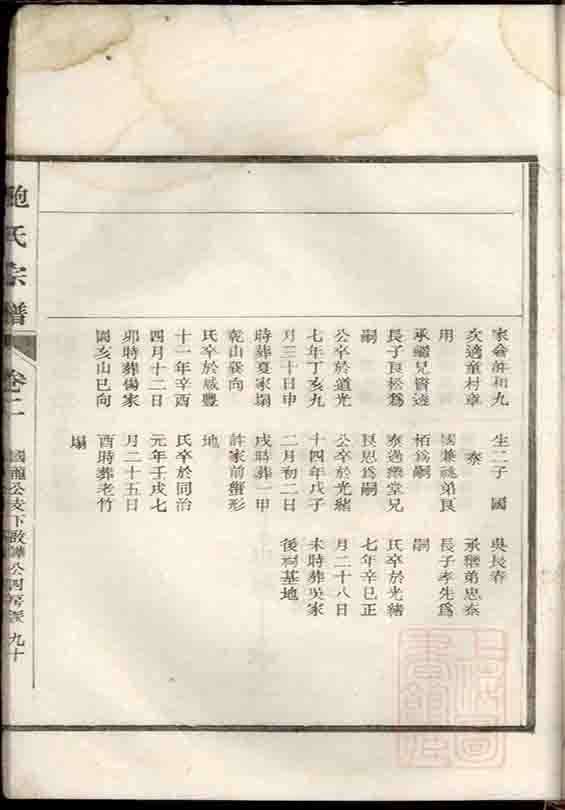 家畲許和九
次適童村章
用
承繼兄賢達
長子良松爲
嗣
公卒於道光
七年丁亥九
月三十日申
時葬夏家塌
乾山發向
氏卒於咸豐
十一年辛酉
四月十二日
卯時葬傷家
園亥山巳向
生二子 國
泰
國兼祧弟良
栢爲嗣
泰過繼堂兄
良思爲嗣
公卒於光緒
十四年戊子
二月初二日
戌時葬一甲
許家前蟹形
地
氏卒於同治
元年壬戌七
月二十五日
酉時葬老竹
塌
吳長春
承繼弟忠泰
長子孝先爲
嗣
氏卒於光緒
七年辛巳正
月二十八日
未時葬吳家
後祠基地
鮑氏宗譜
卷二
國龍公支下啟公四房派 九十
上海圖
書館藏